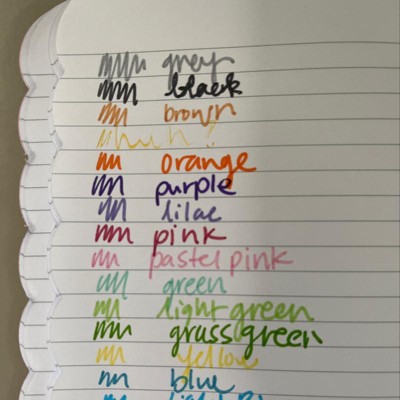 grey
black
brown
orange
purple
lilac
pink
pastel pink
green
light green
grass green
yellow
blue